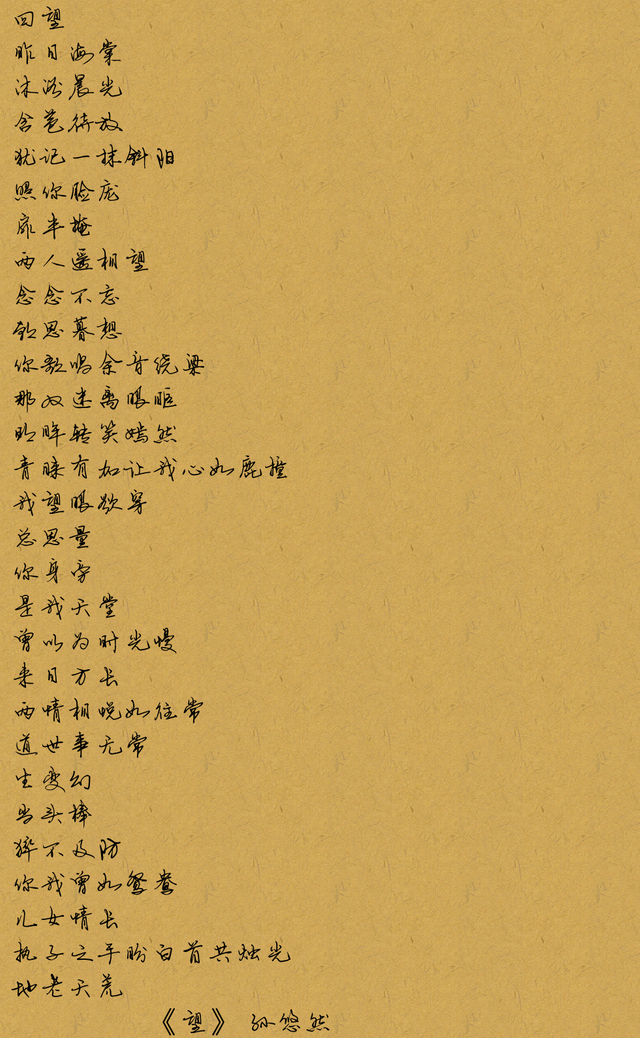 回望
昨日海棠
沐浴晨光
含苞待放
犹记一抹斜阳
照你脸庞
扉半掩
两人遥相望
念念不忘
朝思暮想
你歌唱余音绕梁
那双迷离眼眶
明眸转笑嫣然
青睐有加让我心如鹿撞
我望眼欲穿
总思量
你身旁
是我天堂
曾以为时光慢
来日方长
两情相悦如往常
道世事无常
生变幻
当头棒
猝不及防
你我曾如鸳鸯
儿女情长
执子之手盼白首共烛光
地老天荒
《望》 孙悠然